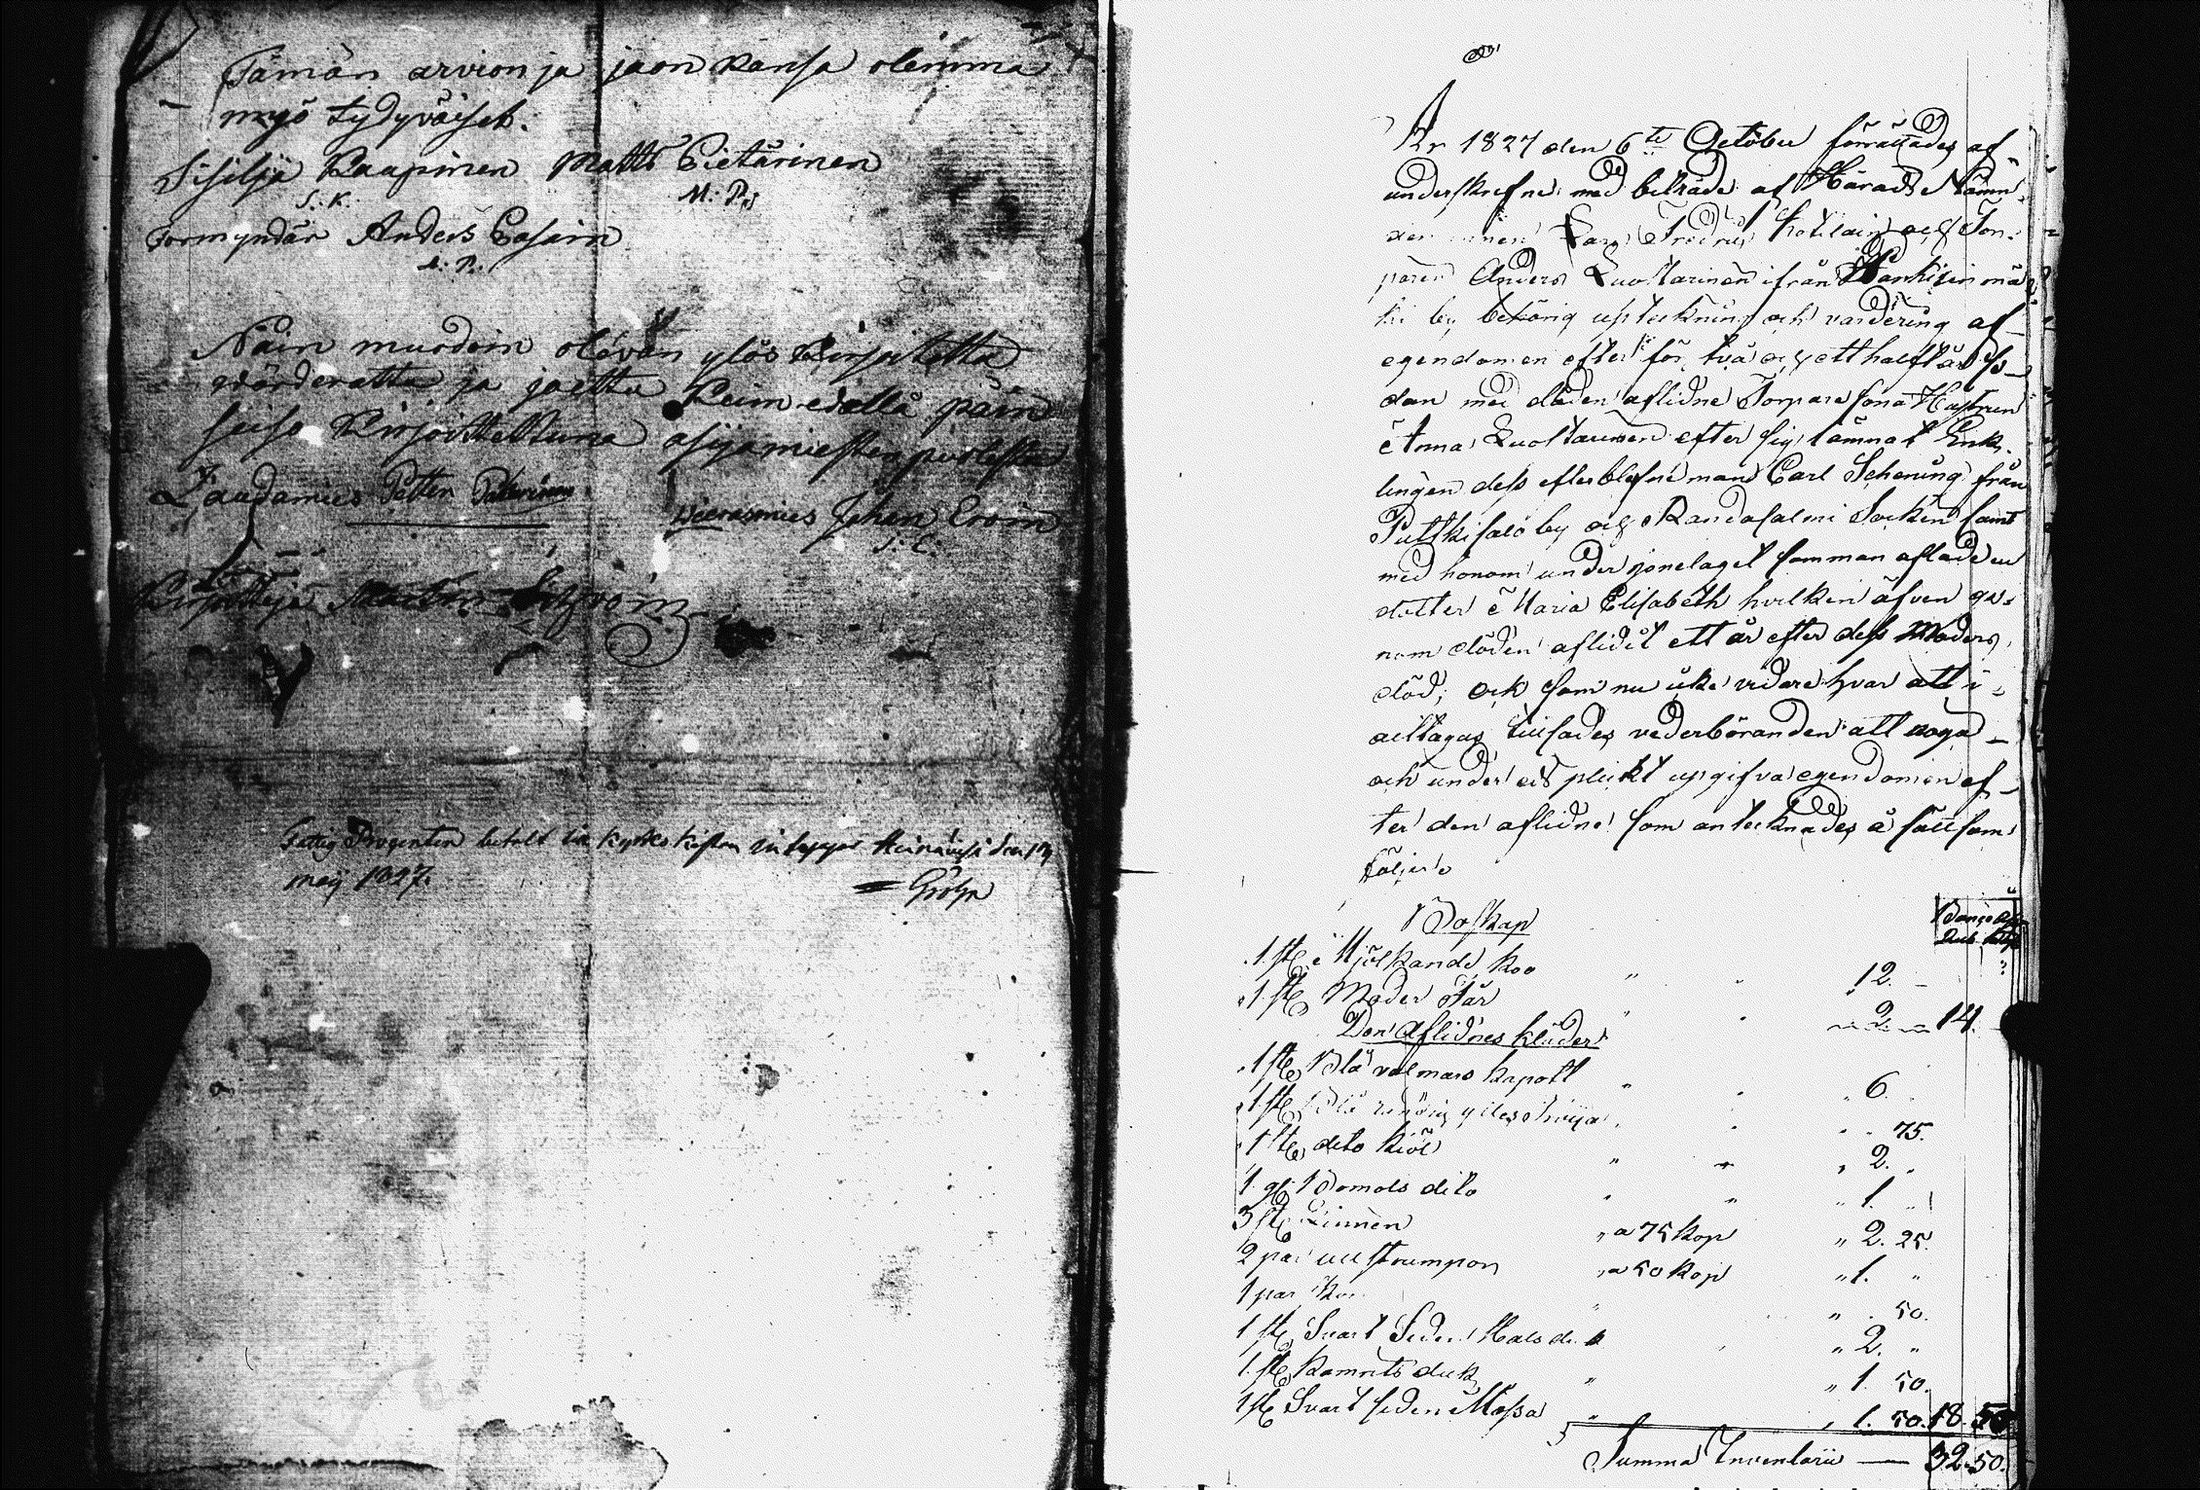 Tämän arvion ja jaon kansa olemma
myö tydyväiset.
Sisilja Kaapinen Matts Pietarinen
S. K. M: P:
Formyndär Anders Casain
A: P:
Näin muodoin olevan ylös kirjoitettu
värderattu ja jaettu Keim edellä päin
seiso Kirjoitettuna asijamiesten puolesta
Laudamies Petter Pakarinen
Vierasmies Johan Eroin
J: E:
Kirjoittaja Martin
Fattig Procenten betalt
maij 1827.
Gröhn
År 1827 den 6te October förrättades af
underskrefne med biträde af Härads Nämn-
Fredrik och Tor-
paren Anders Luostarinen ifrån Pankisinmä-
ki by behörig upteckning och värdering af
egendomen efter för två och ett halft år se-
dan med döden aflidne Torpare sona Hustrun
Anna Luostarinen efter sig lämnat Enk-
lingen dess efterblefne man Carl Schering från
Putkisalo by och Randasalmi Socken samt
med honom under jonelaget samman aflade en
dotter Maria Elisabeth hvilken äfven ge-
nom döden aflidit ett år efter dess Moders
död; ock som nu icke vidare hvar att i-
akttagas tillsades vederböranden att noga
och under eds plickt upgifva egendomen ef-
ter den aflidne som antecknades å sätt som
följer
Boskap
Banco Ass
Rub Kop
1 st. Mjölkande koo " " 12. –
1 st. Moder Får " " 2. – 14.
Den Aflidnes kläder
1 st. Blå valmars kapott " " 6.
1 st. Blå randig ylles tröija " " 75.
1 st. dito kiol " " 2. "
1 gl. Bomols dito " " 1. "
3 st. Linnen " a 75 kop " 2. 25.
2 par ullstrumpor " a 50 kop " 1. "
1 par " " 50.
1 st. Svart Seden Halsduk " 2. "
1 st. kamrits duk " " 1. 50.
1 st. Svart seden Mössa " " 1. 50. 18. 50
Summa Inventarii — 32. 50.